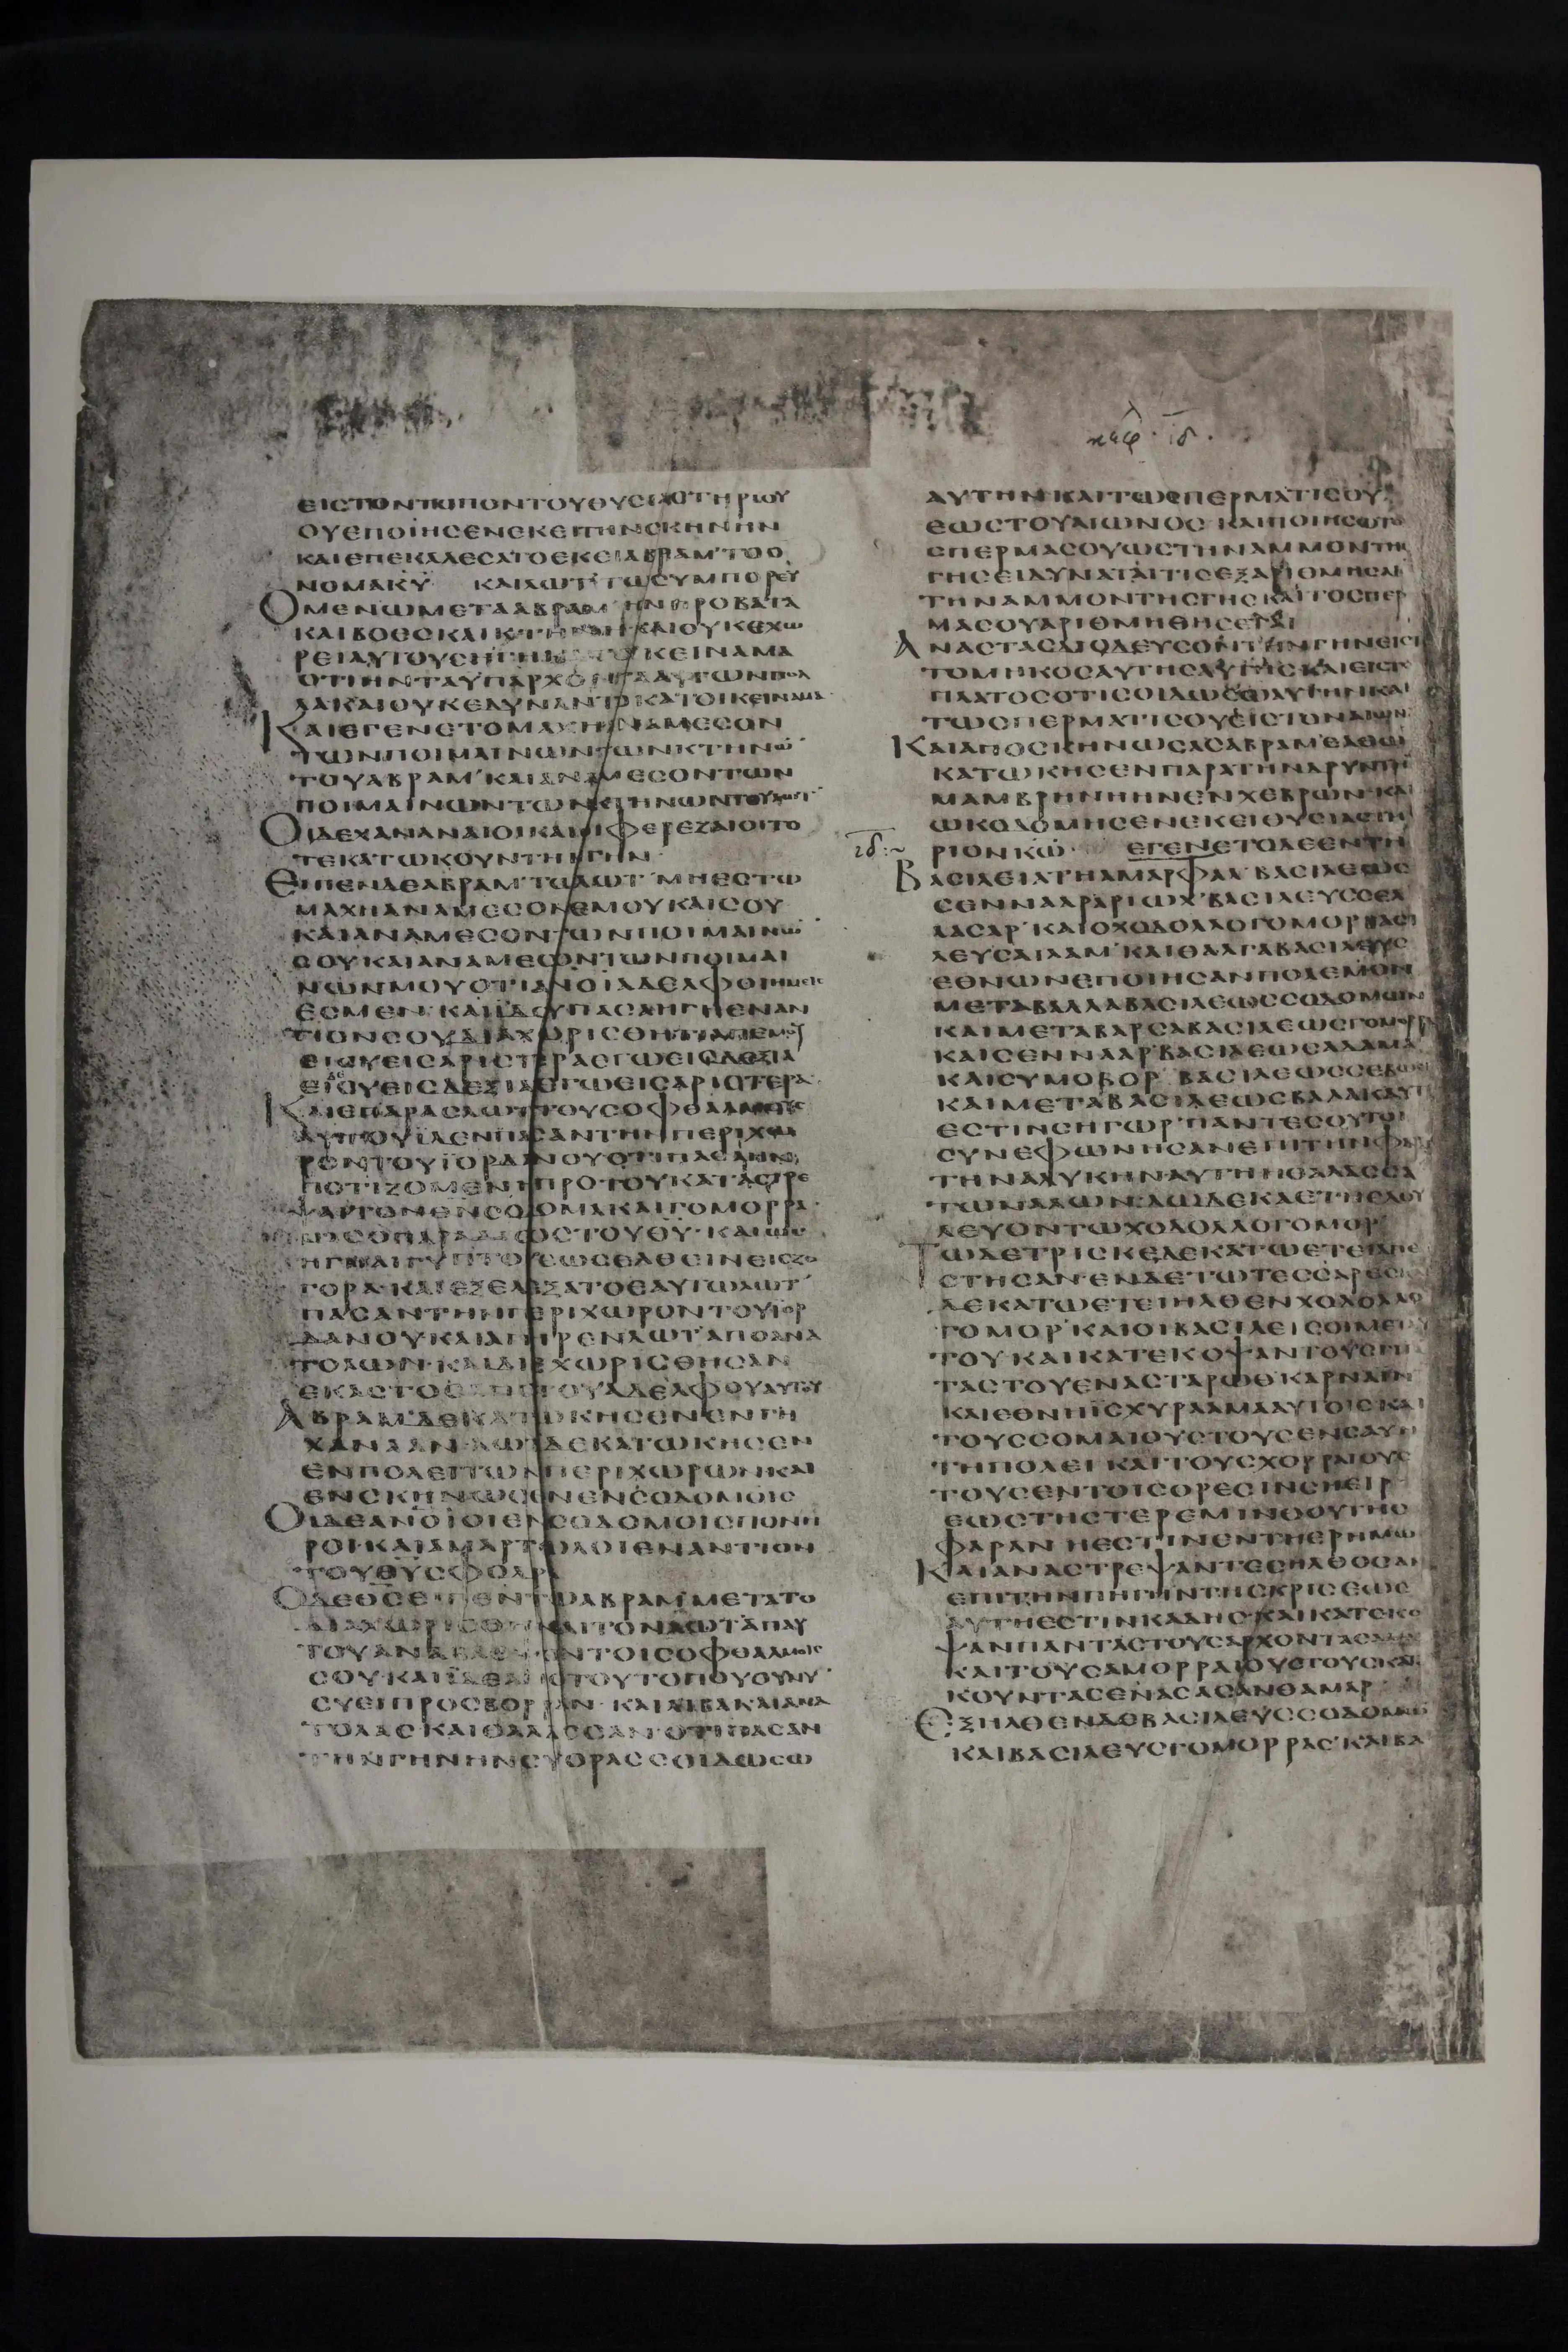 καφ. ιδ.
ΕΙCΤΟΝΤΟΠΟΝΤΟΥΘΥCΙΑCΤΗΡΙΟΥ
ΟΥΕΠΟΙΗCΕΝΕΚΕΙΤΗΝCΚΗΝΗΝ
ΚΑΙΕΠΕΚΑΛΕCΑΤΟΕΚΕΙΑΒΡΑΜ'ΤΟΟ
ΝΟΜΑΚΥ ΚΑΙΛΩΤ'ΤΩCΥΜΠΟΡΕΥ
ΟΜΕΝΩΜΕΤΑΑΒΡΑΜ ΗΝΠΡΟΒΑΤΑ
ΚΑΙΒΟΕCΚΑΙΚΤΗΝΗΚΑΙΟΥΚΕΧΩ
ΡΕΙΑΥΤΟΥCΗΓΗΚΑΤΟΙΚΕΙΝΑΜΑ
ΟΤΙΗΝΤΑΥΠΑΡΧΟΝΤΑΑΥΤΩΝΠΟΛ
ΛΑΚΑΙΟΥΚΕΔΥΝΑΝΤΟΚΑΤΟΙΚΕΙΝΑΜΑ
ΚΑΙΕΓΕΝΕΤΟΜΑΧΗΑΝΑΜΕCΟΝ
ΤΩΝΠΟΙΜΑΙΝΩΝΤΩΝΚΤΗΝΩ
ΤΟΥΑΒΡΑΜ'ΚΑΙΑΝΑΜΕCΟΝΤΩΝ
ΠΟΙΜΑΙΝΩΝΤΩΝΚΤΗΝΩΝΤΟΥΛΩΤ'
ΟΙΔΕΧΑΝΑΝΑΙΟΙΚΑΙΟΙΦΕΡΕΖΑΙΟΙΤΟ
ΤΕΚΑΤΩΚΟΥΝΤΗΝΓΗΝ
ΕΙΠΕΝΔΕΑΒΡΑΜ'ΤΩΛΩΤ'ΜΗΕCΤΩ
ΜΑΧΗΑΝΑΜΕCΟΝΕΜΟΥΚΑΙCΟΥ
ΚΑΙΑΝΑΜΕCΟΝΤΩΝΠΟΙΜΑΙΝΩ
CΟΥΚΑΙΑΝΑΜΕCΟΝΤΩΝΠΟΙΜΑΙ
ΝΩΝΜΟΥΟΤΙΑΝΟΙΑΔΕΛΦΟΙΗΜΕΙC
ΕCΜΕΝ·ΚΑΙΙΔΟΥΠΑCΑΗΓΗΕΝΑΝ
ΤΙΟΝCΟΥΔΙΑΧΩΡΙCΘΗΤΙΑΠΕΜΟΥ
ΕΙCΥΕΙCΑΡΙCΤΕΡΑΕΓΩΕΙCΔΕΞΙΑ
ΕΙΔΕCΥΕΙCΔΕΞΙΑΕΓΩΕΙCΑΡΙCΤΕΡΑ·
ΚΑΙΕΠΑΡΑCΛΩΤ'ΤΟΥCΟΦΘΑΛΜΟΥC
ΑΥΤΟΥΙΔΕΝΠΑCΑΝΤΗΝΠΕΡΙΧΩ
ΡΟΝΤΟΥΙΟΡΔΑΝΟΥΟΤΙΠΑCΑΗΝ
ΠΟΤΙΖΟΜΕΝΗΠΡΟΤΟΥΚΑΤΑCΤΡΕ
ΓΟΡΑ·ΚΑΙΕΞΕΛΕΞΑΤΟΕΑΥΤΩΛΩΤ'
ΠΑCΑΝΤΗΝΠΕΡΙΧΩΡΟΝΤΟΥΙΟΡ
ΔΑΝΟΥΚΑΙΑΠΗΡΕΝΛΩΤ'ΑΠΟΑΝΑ
ΤΟΛΩΝ·ΚΑΙΔΙΕΧΩΡΙCΘΗCΑΝ
ΕΚΑCΤΟCΑΠΟΤΟΥΑΔΕΛΦΟΥΑΥΤΟΥ
ΑΒΡΑΜ'ΔΕΚΑΤΩΚΗCΕΝΕΝΓΗ
ΧΑΝΑΑΝ·ΛΩΤΔΕΚΑΤΩΚΗCΕΝ
ΕΝΠΟΛΕΙΤΩΝΠΕΡΙΧΩΡΩΝΚΑΙ
ΕΝCΚΗΝΩCΕΝΕΝCΟΔΟΜΟΙC
ΟΙΔΕΑΝΟΙΟΙΕΝCΟΔΟΜΟΙCΠΟΝΗ
ΡΟΙ·ΚΑΙΑΜΑΡΤΩΛΟΙΕΝΑΝΤΙΟΝ
ΤΟΥΘΥCΦΟΔΡΑ
ΟΔΕΘCΕΙΠΕΝΤΩΑΒΡΑΜ'ΜΕΤΑΤΟ
ΔΙΑΧΩΡΙCΘΗΝΑΙΤΟΝΛΩΤ'ΑΠΑΥ
ΤΟΥΑΝΑΒΛΕΨΟΝΤΟΙCΟΦΘΑΛΜΟΙC
CΟΥ·ΚΑΙΙΔΕΑΠΟΤΟΥΤΟΠΟΥΟΥΝΥ
CΥΕΙΠΡΟCΒΟΡΡΑΝ·ΚΑΙΛΙΒΑΚΑΙΑΝΑ
ΤΟΛΑCΚΑΙΘΑΛΑCCΑΝ·ΟΤΙΠΑCΑΝ
ΤΗΝΓΗΝΗΝCΥΟΡΑCCΟΙΔΩCΩ
ΑΥΤΗΝΚΑΙΤΩCΠΕΡΜΑΤΙCΟΥ
ΕΩCΤΟΥΑΙΩΝΟC·ΚΑΙΠΟΙΗCΩΤΟ
CΠΕΡΜΑCΟΥΩCΤΗΝΑΜΜΟΝΤΗC
ΓΗCΕΙΔΥΝΑΤΑΙΤΙCΕΞΑΡΙΘΜΗCΑΙ
ΤΗΝΑΜΜΟΝΤΗCΓΗCΚΑΙΤΟCΠΕΡ
ΜΑCΟΥΑΡΙΘΜΗΘΗCΕΤΑΙ
ΑΝΑCΤΑCΔΙΟΔΕΥCΟΝΤΗΝΓΗΝΕΙC
ΤΟΜΗΚΟCΑΥΤΗCΚΑΙΕΙCΤΟ
ΠΛΑΤΟCΟΤΙCΟΙΔΩCΩΑΥΤΗΝΚΑΙ
ΤΩCΠΕΡΜΑΤΙCΟΥΕΙCΤΟΝΑΙΩΝΑ
ΚΑΙΑΠΟCΚΗΝΩCΑCΑΒΡΑΜ'ΕΛΘΩ
ΚΑΤΩΚΗCΕΝΠΑΡΑΤΗΝΔΡΥΝΤΗ
ΜΑΜΒΡΗΝΗΗΝΕΝΧΕΒΡΩΝ·ΚΑΙ
ΩΚΟΔΟΜΗCΕΝΕΚΕΙΘΥCΙΑCΤΗ
ιδ:~ ΡΙΟΝΚΩ· ΕΓΕΝΕΤΟΔΕΕΝΤΗ
ΒΑCΙΛΕΙΑΤΗΑΜΑΡΦΑΛ'ΒΑCΙΛΕΩC
CΕΝΝΑΑΡΑΡΙΩΧ'ΒΑCΙΛΕΥCCΕΛ
ΛΑCΑΡ'ΚΑΙΟΧΟΔΟΛΛΟΓΟΜΟΡΒΑCΙ
ΛΕΥCΑΙΛΑΜ'ΚΑΙΘΑΛΓΑΒΑCΙΛΕΥC
ΕΘΝΩΝΕΠΟΙΗCΑΝΠΟΛΕΜΟΝ
ΜΕΤΑΒΑΛΛΑΒΑCΙΛΕΩCCΟΔΟΜΩΝ
ΚΑΙΜΕΤΑΒΑΡCΑΒΑCΙΛΕΩCΓΟΜΟΡΡ
ΚΑΙCΕΝΝΑΑΡ'ΒΑCΙΛΕΩCΑΔΑΜΑ
ΚΑΙCΥΜΟΒΟΡ'ΒΑCΙΛΕΩCCΕΒΩΙΜ
ΚΑΙΜΕΤΑΒΑCΙΛΕΩCΒΑΛΑΚΑΥΤΗ
ΕCΤΙΝCΗΓΩΡ'ΠΑΝΤΕCΟΥΤΟΙ
CΥΝΕΦΩΝΗCΑΝΕΠΙΤΗΝΦΑΡΑ
ΤΗΝΑΛΥΚΗΝ·ΑΥΤΗΗΘΑΛΑCCΑ
ΤΩΝΑΛΩΝ·ΔΩΔΕΚΑΕΤΗΕΔΟΥ
ΛΕΥΟΝΤΩΧΟΔΟΛΛΟΓΟΜΟΡ'
ΤΩΔΕΤΡΙCΚΕΔΕΚΑΤΩΕΤΕΙΑΠΕ
CΤΗCΑΝ·ΕΝΔΕΤΩΤΕCCΑΡΕC
ΔΕΚΑΤΩΕΤΕΙΗΛΘΕΝΧΟΔΟΛΛΟ
ΓΟΜΟΡ'ΚΑΙΟΙΒΑCΙΛΕΙCΟΙΜΕΤ
ΤΟΥΚΑΙΚΑΤΕΚΟΨΑΝΤΟΥCΓΙΓΑ
ΤΑCΤΟΥCΕΝΑCΤΑΡΩΘ'ΚΑΡΝΑΙΝ
ΚΑΙΕΘΝΗΙCΧΥΡΑΑΜΑΑΥΤΟΙCΚΑΙ
ΤΟΥCCΟΜΑΙΟΥCΤΟΥCΕΝCΑΥΗ
ΤΗΠΟΛΕΙΚΑΙΤΟΥCΧΟΡΡΑΙΟΥC
ΤΟΥCΕΝΤΟΙCΟΡΕCΙΝCΗΕΙΡ
ΕΩCΤΗCΤΕΡΕΜΙΝΘΟΥΤΗC
ΦΑΡΑΝ ΗΕCΤΙΝΕΝΤΗΕΡΗΜΩ
ΚΑΙΑΝΑCΤΡΕΨΑΝΤΕCΗΛΘΟCΑΝ
ΕΠΙΤΗΝΠΗΓΗΝΤΗCΚΡΙCΕΩC
ΑΥΤΗΕCΤΙΝΚΑΔΗC·ΚΑΙΚΑΤΕΚΟ
ΨΑΝΠΑΝΤΑCΤΟΥCΑΡΧΟΝΤΑC
ΚΑΙΤΟΥCΑΜΟΡΡΑΙΟΥCΤΟΥCΚΑΤΟΙ
ΚΟΥΝΤΑCΕΝΑCΑCΑΝΘΑΜΑΡ
ΕΞΗΛΘΕΝΔΕΒΑCΙΛΕΥCCΟΔΟΜΩΝ
ΚΑΙΒΑCΙΛΕΥCΓΟΜΟΡΡΑC'ΚΑΙΒΑ